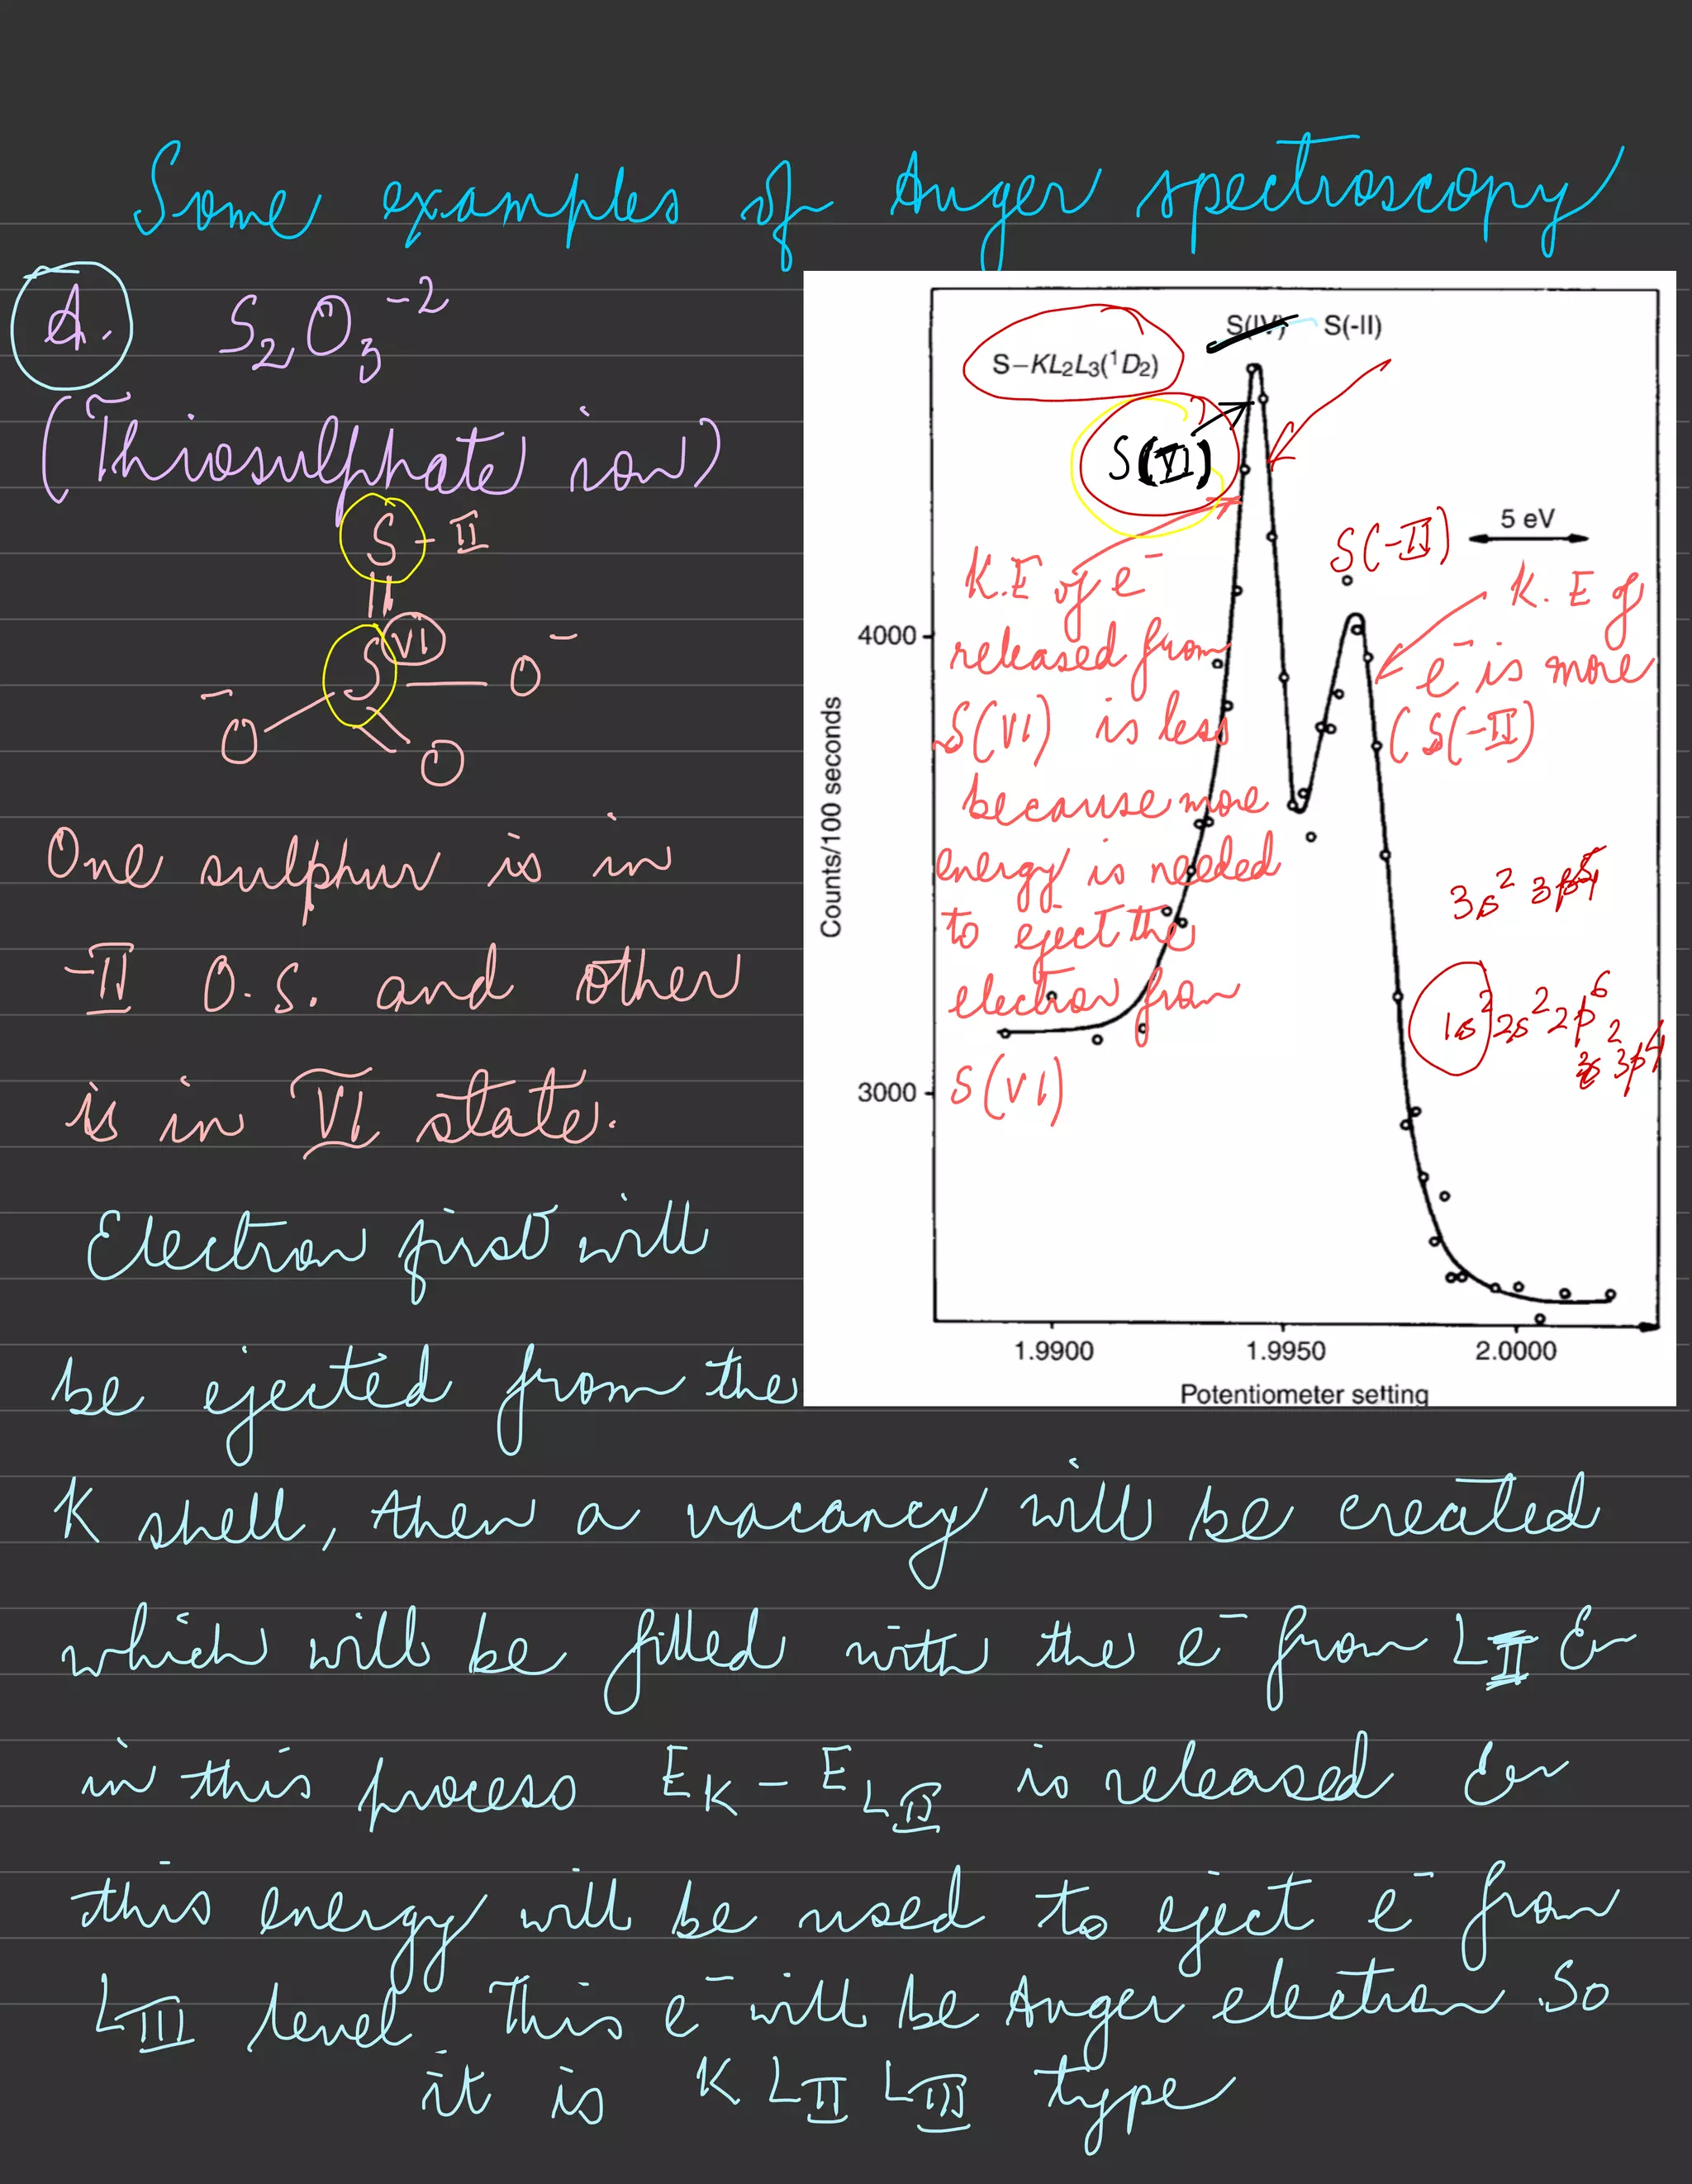 Some examples of Auger spectroscopy
A. S2O3^-2
(Thiosulphate ion)
S -II
S VI
O^-
^-O
O
One sulphur is in
-II O.S. and other
is in VI state.
Electron first will
be ejected from the
K shell, then a vacancy will be created
which will be filled with the e^- from LII &
in this process EK - ELII is released &
this energy will be used to eject e^- from
LIII level. This e^- will be Auger electron. So
it is K LII LIII type
S(IV) S(-II)
S-KL2L3(^1D2)
S(VI)
S(-II)
5 eV
K.E of e^-
released from
S(VI) is less
because more
energy is needed
to eject the
electron from
S(VI)
K.E of
e^- is more
(S(-II)
3s^2 3p
1s^2 2s^2 2p^6
3s^2 3p^4
4000
3000
Counts/100 seconds
1.9900 1.9950 2.0000
Potentiometer setting